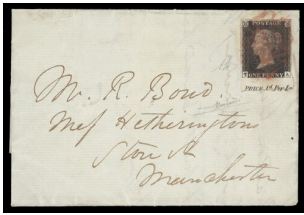 POSTAGE
ONE PENNY
PRICE 1d. Per La
Mr. R. Bond.
Mess Hetherington
Stou St
Manchester